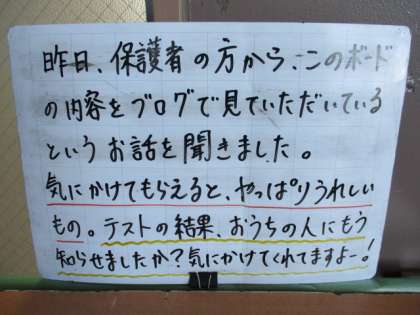 昨日、保護者の方から、このボード
の内容をブログで見ていただいている
というお話を聞きました。
気にかけてもらえると、やっぱりうれしい
もの。テストの結果、おうちの人にもう
知らせましたか？気にかけてくれてますよー！